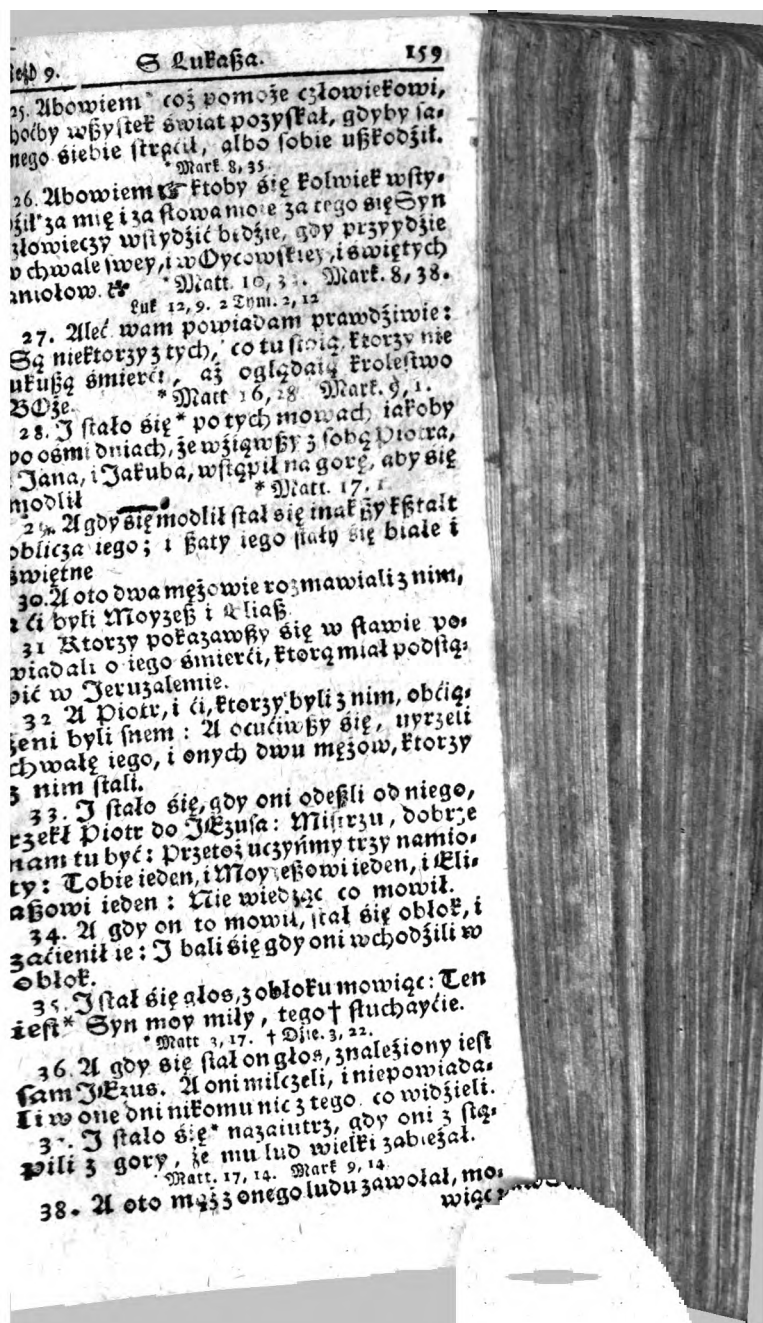 9. S Lukaßa. 159
25. Abowiem* coż pomoże człowiekowi,
hoćby wßyſtek świat pozyſkał, gdyby ſa-
nego siebie ſtraćił, albo ſobie ußkodźił.
* Mark. 8, 35.
26. Abowiem ☞ ktoby śię kolwiek wſty-
dźił* za mię i za ſłowa moie za tego się Syn
złowieczy wſtydźić będźie, gdy przyydźie
w chwale ſwey, i w Oycowſkiey, i świętych
aniołow. * Matt. 10, 33. Mark. 8, 38.
Luk 12, 9. 2 Tym. 2, 12
27. Aleć wam powiadam prawdźiwie:
Są niektorzy z tych,* co tu ſtoią, ktorzy nie
ukußą śmierći, aż oglądaią kroleſtwo
BOże. * Matt 16, 28 Mark. 9, 1.
28. J ſtało śię* po tych mowach iakoby
po ośmi dniach, że wźiąwßy z ſobą Piotra,
i Jana, i Jakuba, wſtąpił na gorę, aby się
modlił * Matt. 17, 1
29. A gdy śię modlił ſtał się inakßy kßtałt
oblicza iego; i ßaty iego ſtały śię białe i
świętne
30. A oto dwa mężowie rozmawiali z nim,
a ći byli Moyzeß i Eliaß.
31 Ktorzy pokazawßy się w ſławie po-
wiadali o iego śmierći, ktorą miał podſtą-
pić w Jeruzalemie.
32 A Piotr, i ći, ktorzy byli z nim, obćią-
żeni byli ſnem: A ocućiwßy śię, uyrzeli
chwałę iego, i onych dwu mężow, ktorzy
z nim ſtali.
33. J ſtało śię, gdy oni odeßli od niego,
rzekł Piotr do JEzuſa: Miſtrzu, dobrze
nam tu być: Przetoż uczyńmy trzy namio-
ty: Tobie ieden, i Moyzeßowi ieden, i Eli-
aßowi ieden: Nie wiedząc co mowił.
34. A gdy on to mowił, ſtał się obłok, i
zaćienił ie: J bali śię gdy oni wchodźili w
obłok.
35. J ſtał śię głos, z obłoku mowiąc: Ten
ieſt* Syn moy miły, tego † ſłuchayćie.
* Matt 3, 17. † Dźie. 3, 22.
36. A gdy śię ſtał on głos, znaleźiony ieſt
ſam JEzus. A oni milczeli, i niepowiada-
li w one dni nikomu nic z tego, co widźieli.
37. J ſtało śię* nazaiutrz, gdy oni z ſtą-
pili z gory, że mu lud wielki zabieżał.
* Matt. 17, 14. Mark 9, 14
38. A oto mąż z onego ludu zawołał, mo-
wiąc